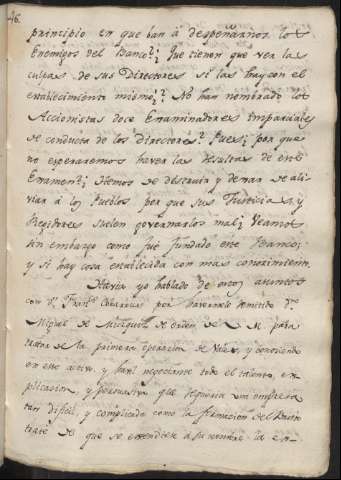 46.
principio en que han à despeñarnos los
Enemigos del Banco? ¿ Que tienen que ver las
culpas de sus Directores si las hay con el
establecimiento mismo? ¿ No han nombrado los
Accionistas doce Examinadores Imparciales
de conducta de los Directores? Pues ¿ por que
no esperaremos haver las resultas de este
Examen? ¿ Hemos de destruir y dexar de ali-
viar à los Pueblos por que sus Justicias, y
Regidores suelen governarlos mal? Veamos
sin embargo como fué fundado este Banco,
y si hay cosa establecida con mas conocimiento.
Havia yo hablado de estos asuntos
con Dn. Franco. Cabarrus por haverle remitido Dn.
Miguel de Muzquiz de orden de S. M. para
tratar de la primera operacion de Vales, y conociendo
en este activo, y habil negociante todo el talento, ex
plicacion, y persuasiva que requeria una empresa
tan dificil, y complicada como la formacion del Banco
traté de que se extendiese a su nombre la es-